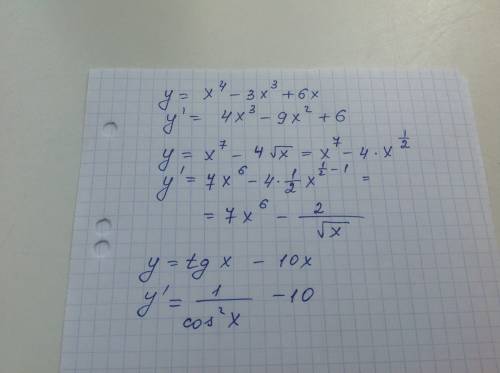 y = x⁴ - 3x³ + 6x
y' = 4x³ - 9x² + 6
y = x⁷ - 4√x = x⁷ - 4 · x^(1/2)
y' = 7x⁶ - 4 · 1/2 x^(1/2 - 1) =
= 7x⁶ - 2/√x
y = tg x - 10x
y' = 1/cos²x - 10